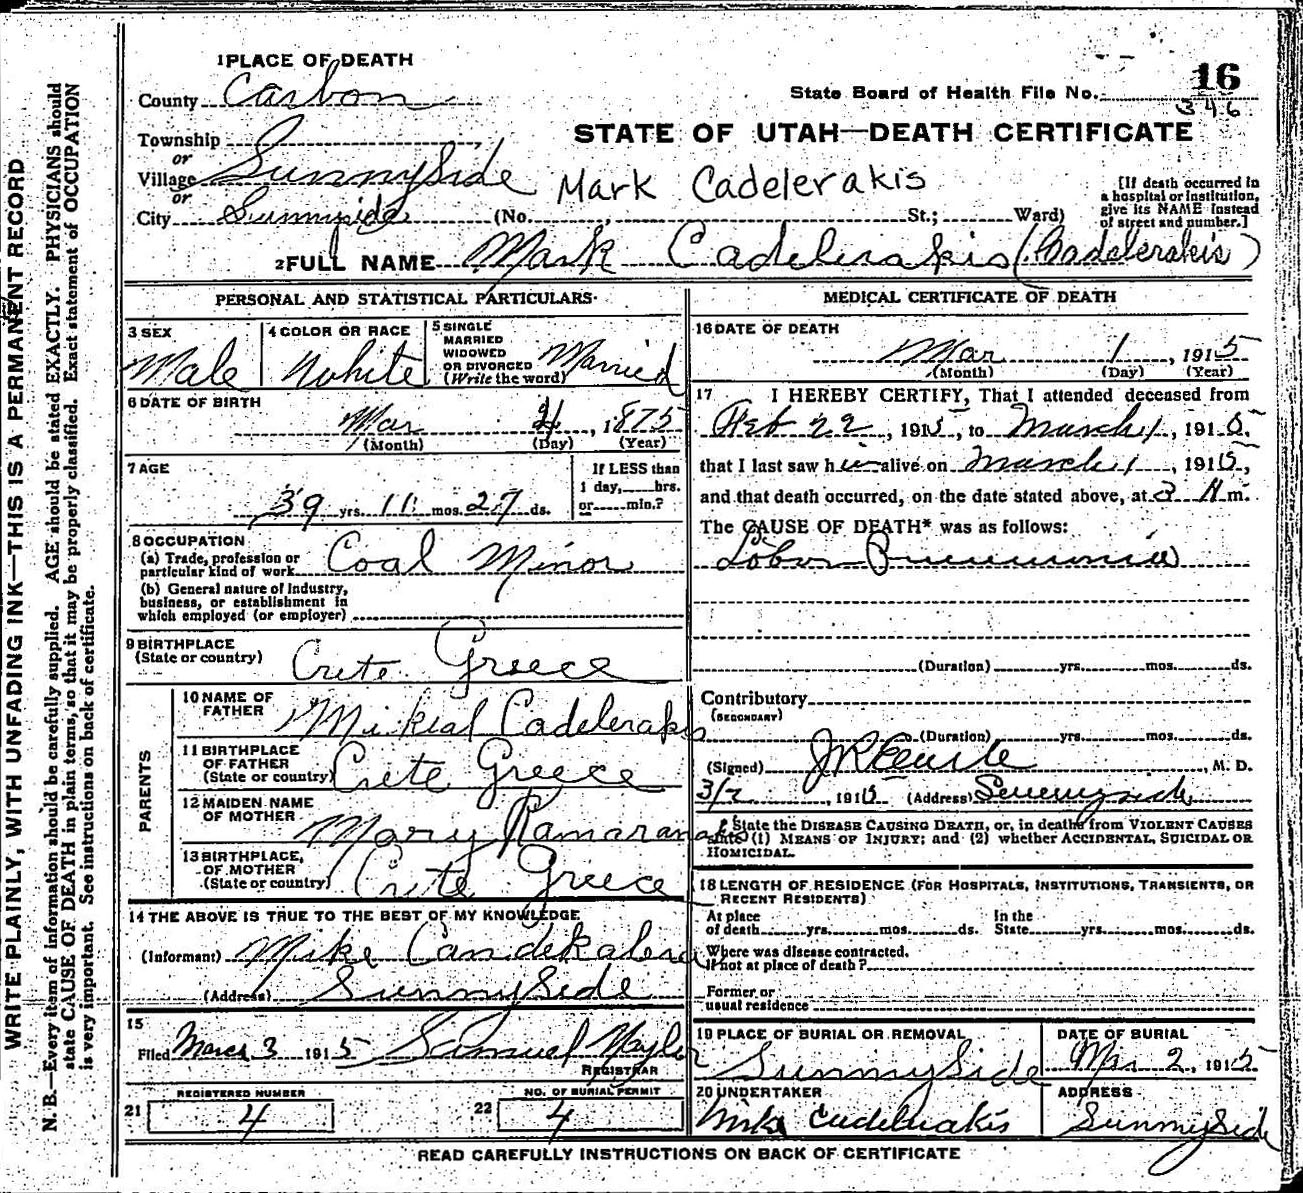 1 PLACE OF DEATH
County Carbon
State Board of Health File No. 16
346
Township
or
Village Sunnyside
or
City Sunnyside (No. , St.; Ward)
STATE OF UTAH—DEATH CERTIFICATE
Mark Cadelerakis
[If death occurred in
a hospital or institution,
give its NAME instead
of street and number.]
2 FULL NAME Mark Cadelerakis (Cadelerakis)
PERSONAL AND STATISTICAL PARTICULARS
3 SEX
Male
4 COLOR OR RACE
White
5 SINGLE
MARRIED
WIDOWED
OR DIVORCED
(Write the word)
Married
6 DATE OF BIRTH
Mar 4, 1875
(Month) (Day) (Year)
7 AGE
39 yrs. 11 mos. 27 ds.
If LESS than
1 day, hrs.
or min.?
8 OCCUPATION
(a) Trade, profession or
particular kind of work Coal Minor
(b) General nature of industry,
business, or establishment in
which employed (or employer)
9 BIRTHPLACE
(State or country) Crete Greece
PARENTS
10 NAME OF
FATHER Mikeal Cadelerakis
11 BIRTHPLACE
OF FATHER
(State or country) Crete Greece
12 MAIDEN NAME
OF MOTHER Mary
13 BIRTHPLACE,
OF MOTHER
(State or country) Crete Greece
14 THE ABOVE IS TRUE TO THE BEST OF MY KNOWLEDGE
(Informant) Mike
(Address) Sunnyside
15
Filed 3 1915 Samuel Naylor
REGISTRAR
REGISTERED NUMBER
21 4
NO. OF BURIAL PERMIT
22 4
MEDICAL CERTIFICATE OF DEATH
16 DATE OF DEATH
Mar 1, 1915
(Month) (Day) (Year)
17 I HEREBY CERTIFY, That I attended deceased from
Feb 22, 1915, to March 1, 1915,
that I last saw him alive on March 1, 1915,
and that death occurred, on the date stated above, at 3 A m.
The CAUSE OF DEATH* was as follows:
Lobar Pneumonia
(Duration) yrs. mos. ds.
Contributory
(SECONDARY)
(Duration) yrs. mos. ds.
(Signed) , M. D.
3/2, 1915 (Address) Sunnyside
* State the DISEASE CAUSING DEATH, or, in deaths from VIOLENT CAUSES
state (1) MEANS OF INJURY; and (2) whether ACCIDENTAL, SUICIDAL OR
HOMICIDAL.
18 LENGTH OF RESIDENCE (FOR HOSPITALS, INSTITUTIONS, TRANSIENTS, OR
RECENT RESIDENTS)
At place
of death yrs. mos. ds.
In the
State yrs. mos. ds.
Where was disease contracted,
If not at place of death?
Former or
usual residence
19 PLACE OF BURIAL OR REMOVAL
Sunnyside
DATE OF BURIAL
Mar 2, 1915
20 UNDERTAKER
Mike Cadelerakis
ADDRESS
Sunnyside
READ CAREFULLY INSTRUCTIONS ON BACK OF CERTIFICATE
WRITE PLAINLY, WITH UNFADING INK—THIS IS A PERMANENT RECORD
N. B.—Every item of information should be carefully supplied. AGE should be stated EXACTLY. PHYSICIANS should
state CAUSE OF DEATH in plain terms, so that it may be properly classified. Exact statement of OCCUPATION
is very important. See instructions on back of certificate.